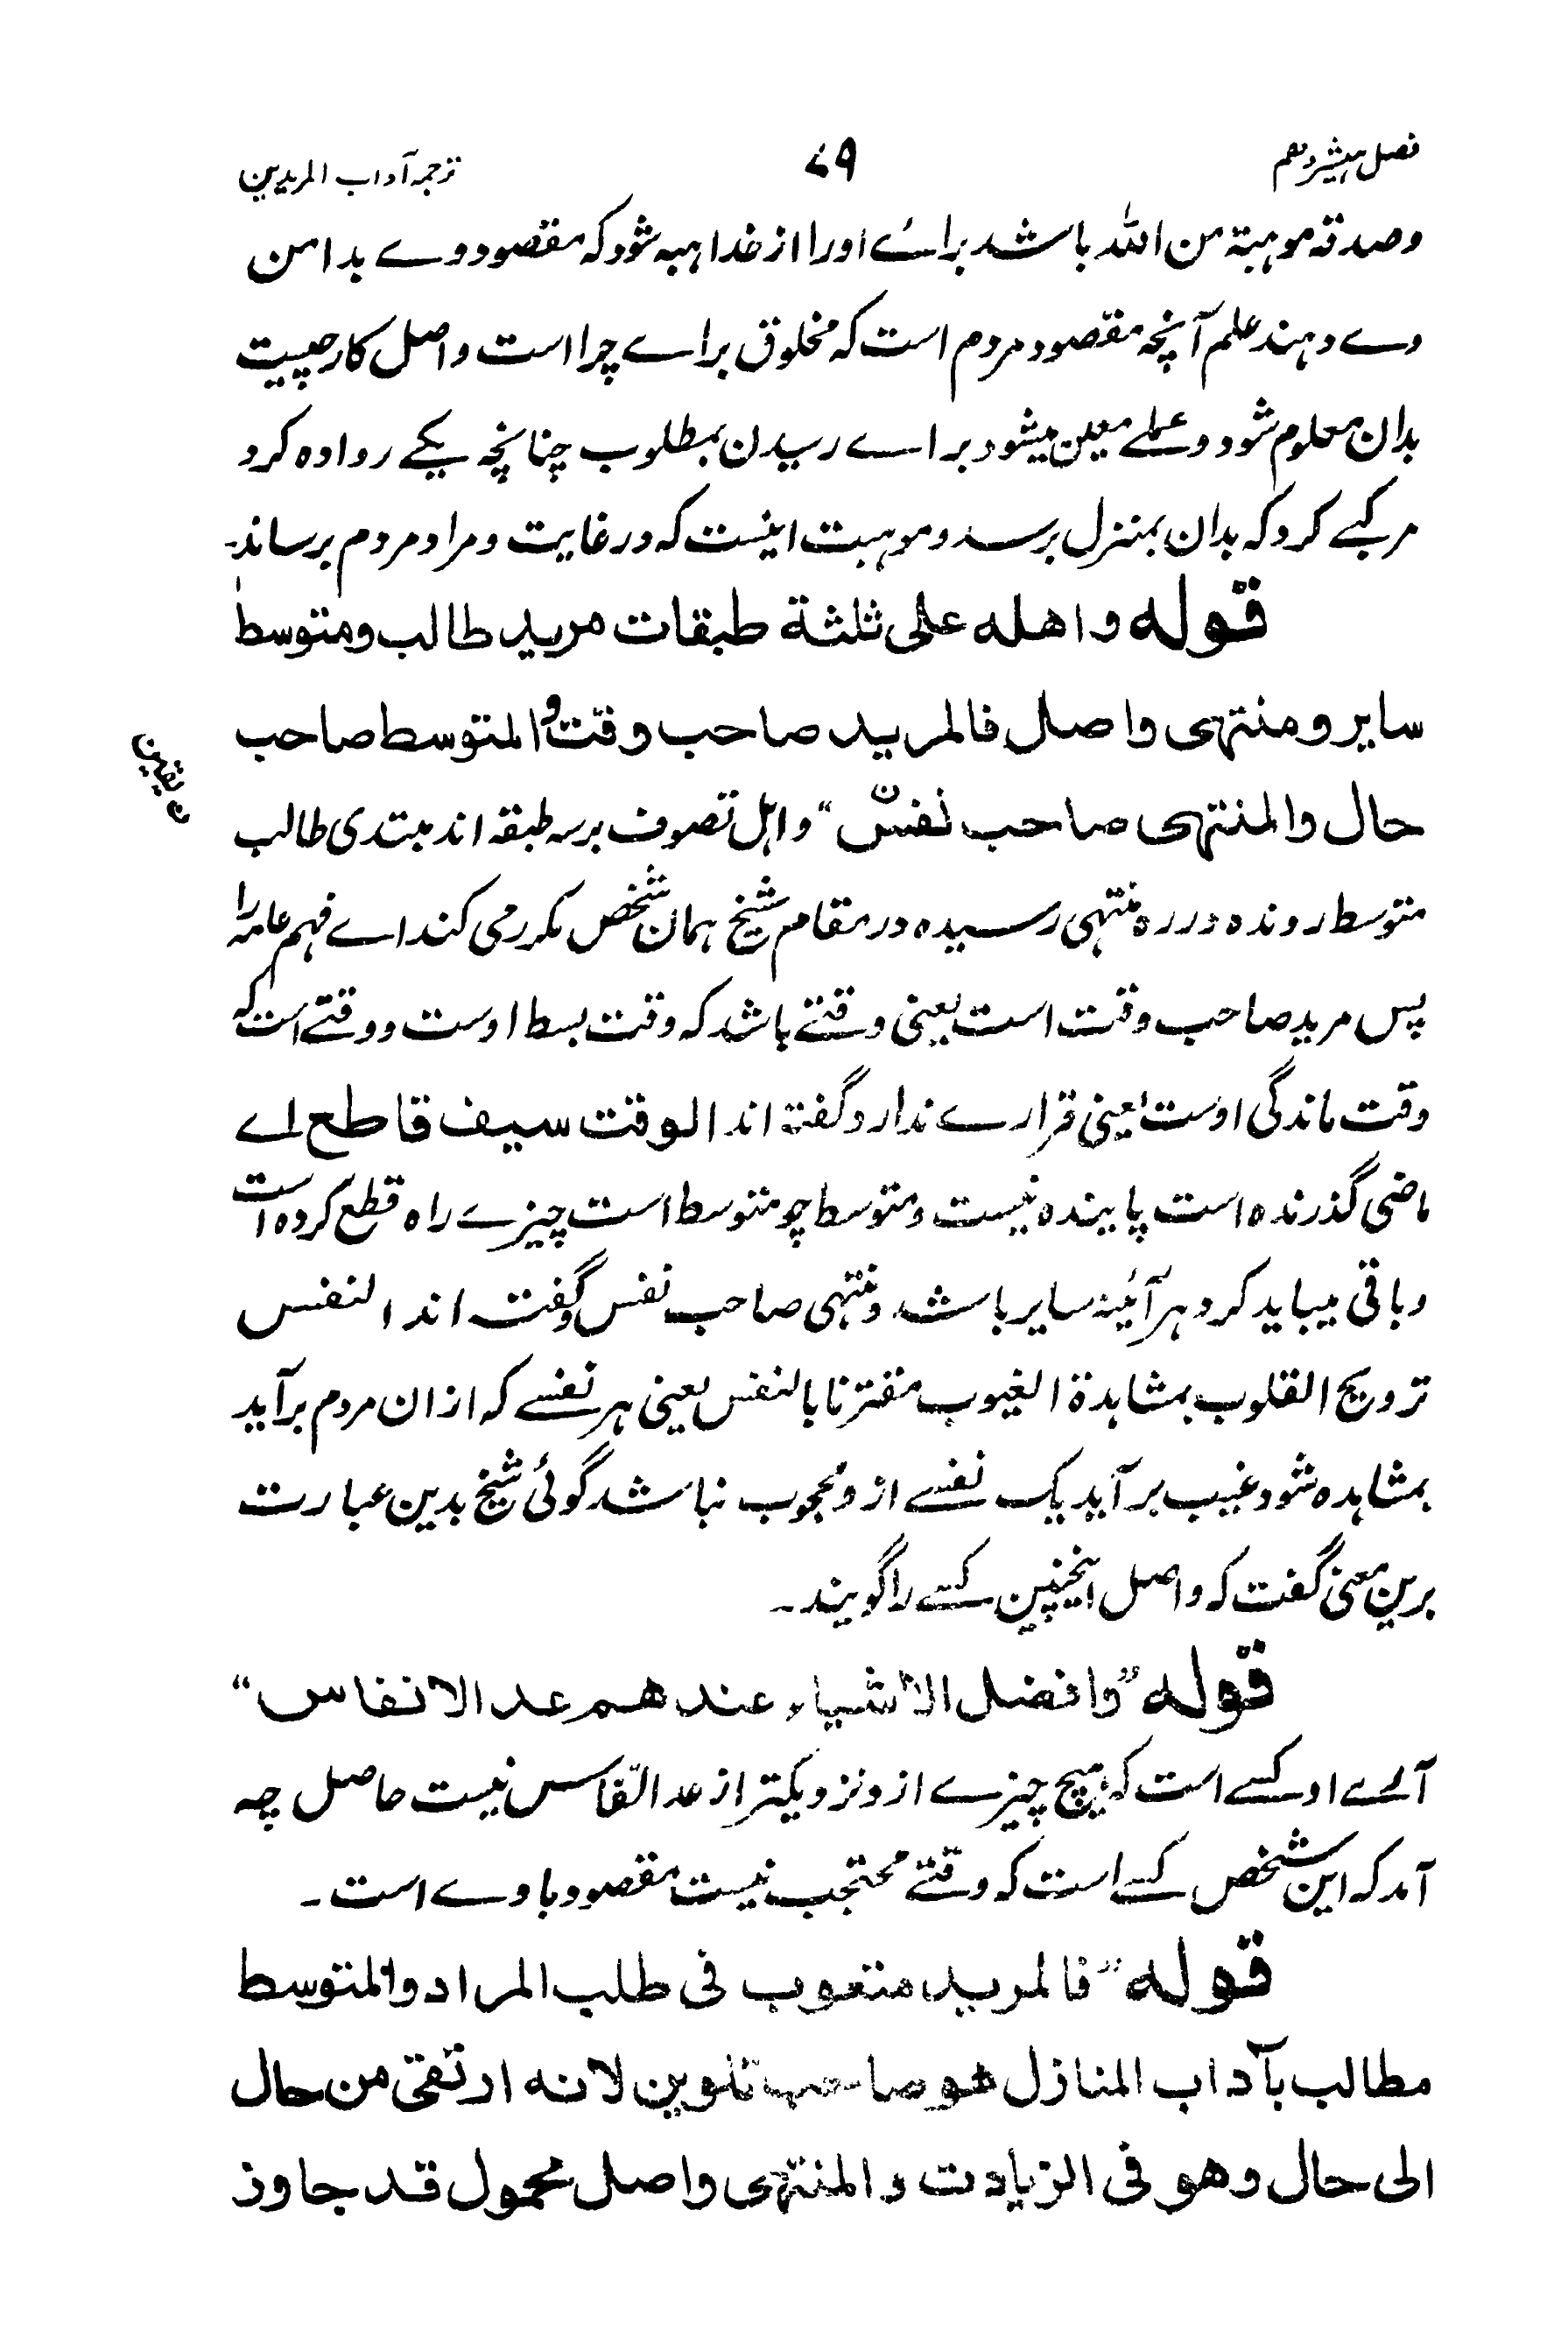 فصل ہیشردہم
۷۹
ترجمہ آداب المریدین
وصدقہ موہبۃ من اللہ باشد براے اورا از خدا ہبہ شود کہ مقصود وے بدامن
وے دہند علم آنچہ مقصود مردم است کہ مخلوق براے چرا است واصل کار چیست
بدان معلوم شود و عملے معین میشود براے رسیدن بمطلوب چنانچہ یکے روادہ کرد
مرکبے کرد کہ بدان بمنزل برسد و موہبت اینست کہ در غایت و مراد مردم برساند۔
قولہ واھلہ علی ثلثۃ طبقات مرید طالب ومتوسط
سایر ومنتھی واصل فالمرید صاحب وقت والمتوسط صاحب
حال والمنتھی صاحب نفس“ واہل تصوف برسہ طبقہ اند مبتدی طالب
متوسط روندہ در رہ منتہی رسیدہ در مقام شیخ ہمان شخص مکرر می کند اے فہم عامہ را
پس مرید صاحب وقت است یعنی وقتے باشد کہ وقت بسط اوست و وقتے است کہ
وقت ماندگی اوست یعنی قرارے ندارد گفتہ اند الوقت سیف قاطع اے
ماضی گذرندہ است پایندہ نیست ومتوسط چو متوسط است چیزے راہ قطع کردہ است
وباقی میباید کرد ہرآئینہ سایر باشد ومنتہی صاحب نفس وگفتہ اند النفس
ترویح القلوب بمشاہدۃ الغیوب مقترنا بالنفس یعنی ہر نفسے کہ از ان مردم برآید
بمشاہدہ شود غیب برآید یک نفسے از و محجوب نباشد گوئی شیخ بدین عبارت
برین معنی گفت کہ واصل اینچنین کسے را گویند۔
قولہ ”وافضل الاشیاء عندھم عد الانفاس“
آرے او کسے است کہ ہیچ چیزے از و نزدیکتر از عد انفاس نیست حاصل چہ
آمد کہ این شخص کسے است کہ وقتے محتجب نیست مقصود باوے است۔
قولہ ”فالمرید متعوب فی طلب المراد والمتوسط
مطالب بآداب المنازل ھو صاحب تلوین لانہ ارتقی من حال
الی حال وھو فی الزیادت والمنتھی واصل محمول قد جاوز